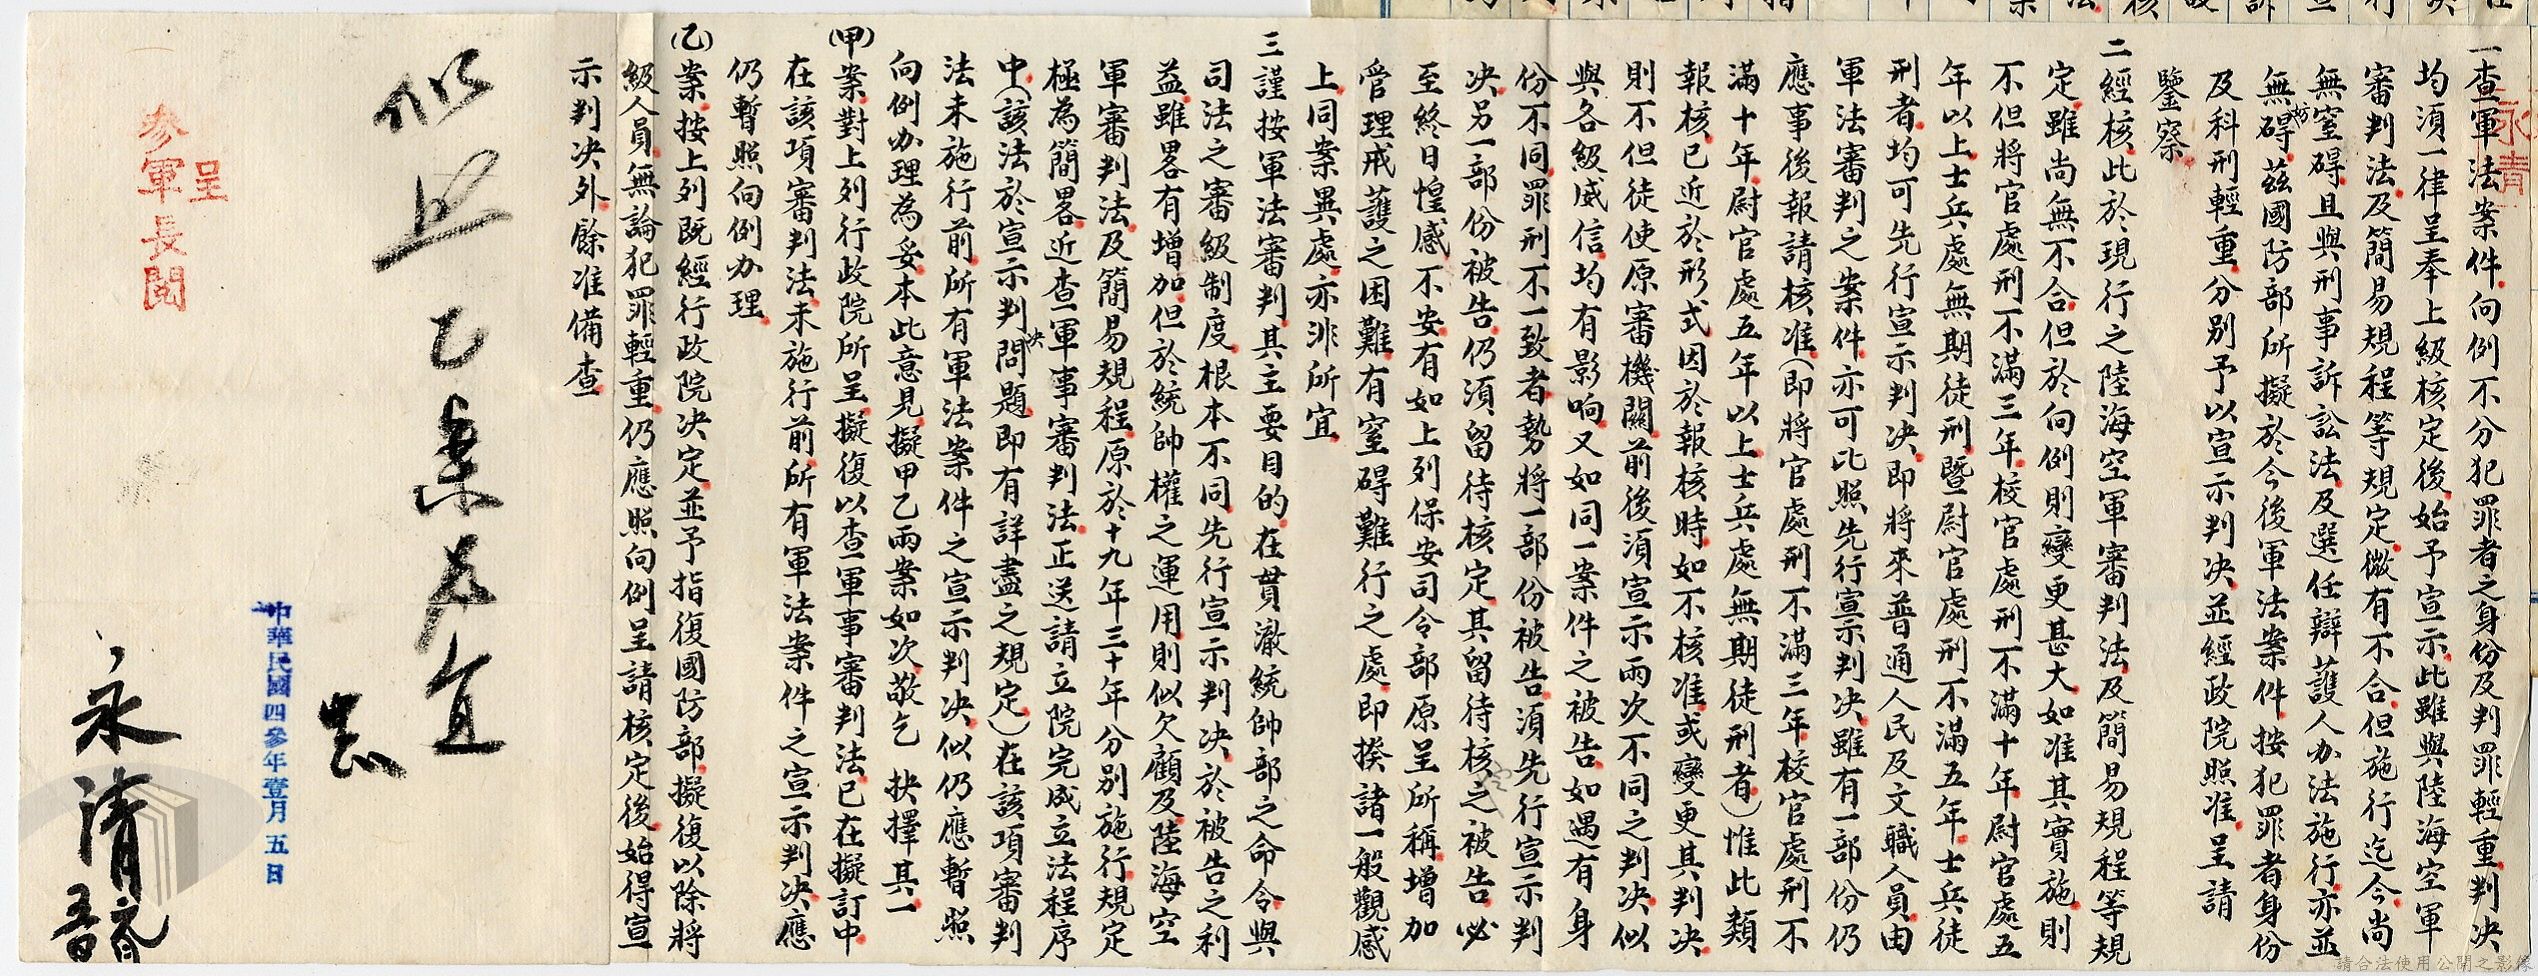 一查軍法案件向例不分犯罪者之身份及判罪輕重判決
均須一律呈奉上級核定後始予宣示此雖與陸海空軍
審判法及簡易規程等規定微有不合但施行迄今尚
無窒碍且與刑事訴訟法及選任辯護人办法施行亦並
無妨碍茲國防部所擬於今後軍法案件按犯罪者身份
及科刑輕重分別予以宣示判決並經政院照准呈請
鑒察
二經核此於現行之陸海空軍審判法及簡易規程等規
定雖尚無不合但於向例則變更甚大如准其實施則
不但將官處刑不滿三年校官處刑不滿十年尉官處五
年以上士兵處無期徒刑暨尉官處刑不滿五年士兵徒
刑者均可先行宣示判決即將來普通人民及文職人員由
軍法審判之案件亦可比照先行宣示判決雖有一部份仍
應事後報請核准(即將官處刑不滿三年校官處刑不
滿十年尉官處五年以上士兵處無期徒刑者)惟此類
報核已近於形式因於報核時如不核准或變更其判決
則不但徒使原審機關前後須宣示兩次不同之判決似
與各級威信均有影响又如同一案件之被告如遇有身
份不同罪刑不一致者勢將一部份被告須先行宣示判
決另一部份被告仍須留待核定其留待核之被告必
至終日惶感不安有如上列保安司令部原呈所稱增加
管理戒護之困難有窒碍難行之處即揆諸一般觀感
上同案異處亦非所宜
三謹按軍法審判其主要目的在貫澈統帥部之命令與
司法之審級制度根本不同先行宣示判決於被告之利
益雖畧有增加但於統帥權之運用則似欠顧及陸海空
軍審判法及簡易規程原於十九年三十年分別施行規定
極為簡畧近查軍事審判法正送請立院完成立法程序
中(該法於宣示判決問題即有詳盡之規定)在該項審判
法未施行前所有軍法案件之宣示判決似仍應暫照
向例办理為妥本此意見擬甲乙兩案如次敬乞 抉擇其一
(甲)案對上列行政院所呈擬復以查軍事審判法已在擬訂中
在該項審判法未施行前所有軍法案件之宣示判決應
仍暫照向例办理
(乙)案按上列既經行政院決定並予指復國防部擬復以除將
級人員無論犯罪輕重仍應照向例呈請核定後始得宣
示判決外餘准備查
似照乙案為宜
呈
參軍長閱
中華民國四參年壹月五日
永清
永清
請合法使用公開之影像